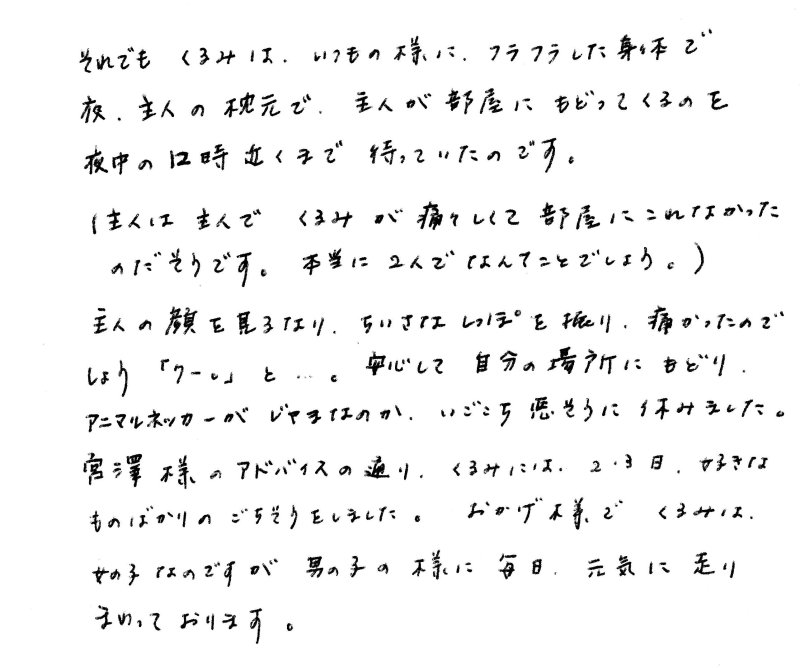 それでも くるみは、いつもの様に、フラフラした身体で
夜、主人の枕元で、主人が部屋に もどってくるのを
夜中の12時近くまで 待っていたのです。
(主人は 主人で くるみが痛々しくて 部屋にこれなかった
のだそうです。本当に 2人でなんてことでしょう。)
主人の顔を見るなり、ちいさなしっぽを振り、痛かったので
しょう「クーン」と…。安心して 自分の場所に もどり、
アニマルネッカーが じゃまなのか、いごこち悪そうに 休みました。
宮澤様のアドバイスの通り、くるみには、2・3日、好きな
ものばかりの ごちそうをしました。おかげ様で くるみは、
女の子なのですが 男の子の様に 毎日、元気に走り
まわっております。